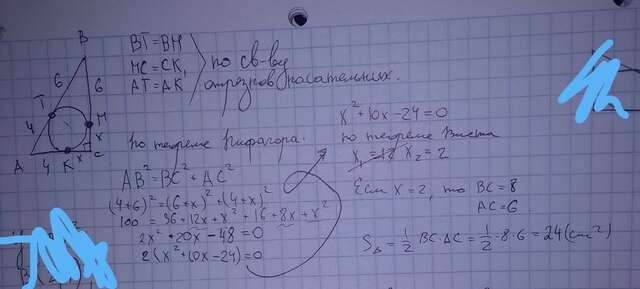 B
6
6
T
M
4
x
A
4
K
x
C
BT=BM
MC=CK,
AT=AK
по св-ву
отрезков касательных.
по теореме Пифагора.
AB²=BC²+AC²
(4+6)²=(6+x)²+(4+x)²
100=36+12x+x²+16+8x+x²
2x²+20x-48=0
2(x²+10x-24)=0
x²+10x-24=0
по теореме Виета
x₁=-12 x₂=2
Если x=2, то BC=8
AC=6
S△=1/2 BC·AC=1/2·8·6=24(см²)